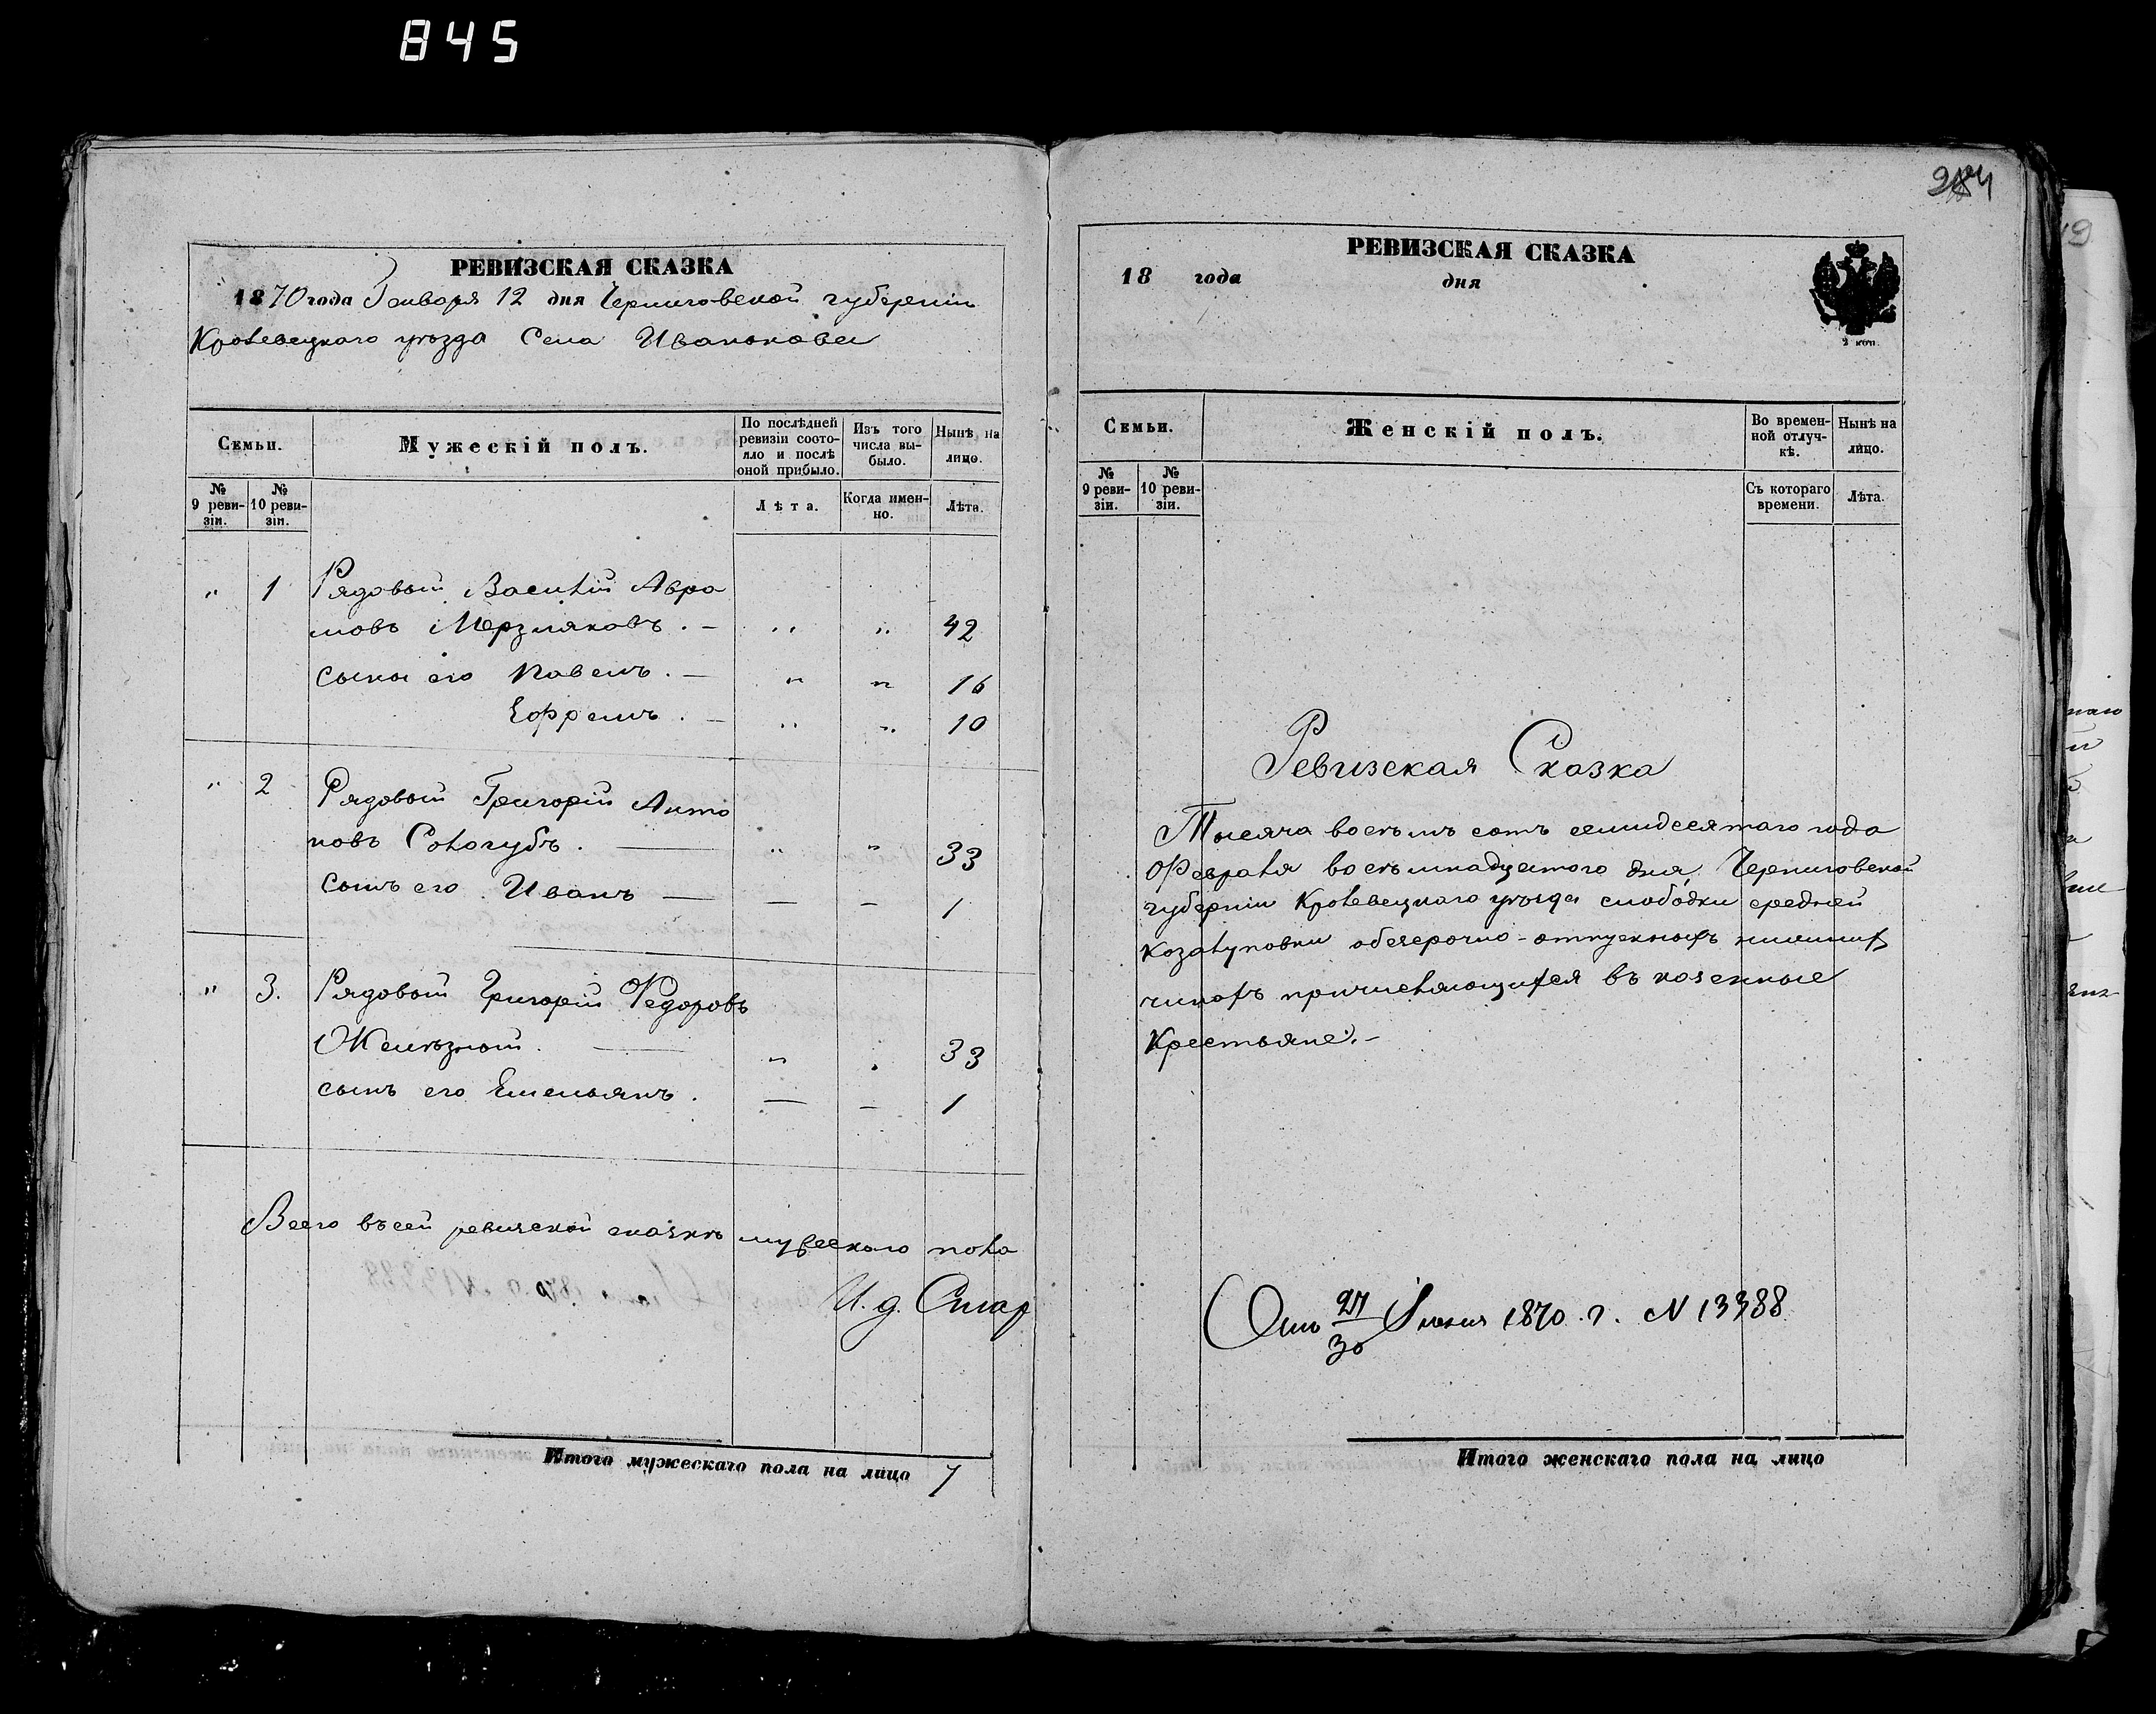 845
РЕВИЗСКАЯ СКАЗКА
1870 года Генваря 12 дня Черниговской губерніи
Кролевецкаго уѣзда Села Иванькова
Семьи.
Мужескій полъ.
По послѣдней ревизіи состояло и послѣ оной прибыло.
Изъ того числа выбыло.
Нынѣ на лицо.
№ 9 ревизіи.
№ 10 ревизіи.
Лѣта.
Когда именно.
Лѣта.
" 1 Рядовый Василій Авра
мовъ Мерзляковъ. — " " 42
сыны его Павелъ. — " " 16
Ефремъ. — " " 10
" 2 Рядовый Григорій Анто
новъ Сологубъ. — " " 33
сынъ его Иванъ — — — 1
" 3. Рядовый Григорій Федоровъ
Желѣзный. — " . 33
сынъ его Емельянъ. — — 1
Всего въ сей ревизской сказкѣ мужескаго пола
И. д. Стар
Итого мужескаго пола на лицо 7
РЕВИЗСКАЯ СКАЗКА
18 года дня
2 коп.
Семьи.
Женскій полъ.
Во временной отлучкѣ.
Нынѣ на лицо.
№ 9 ревизіи.
№ 10 ревизіи.
Съ котораго времени.
Лѣта.
Ревизская Сказка
Тысяча восемь сотъ семидесятаго года
Февраля восемнадцатого дня, Черниговской
губерніи Кролевецкаго уѣзда слободки средней
Козацуповки безсрочно-отпускныхъ нижнихъ
чиновъ причисляющихся въ казенные
Крестьяне. —
Отъ 27/30 Іюня 1870 г. N 13388
Итого женскаго пола на лицо